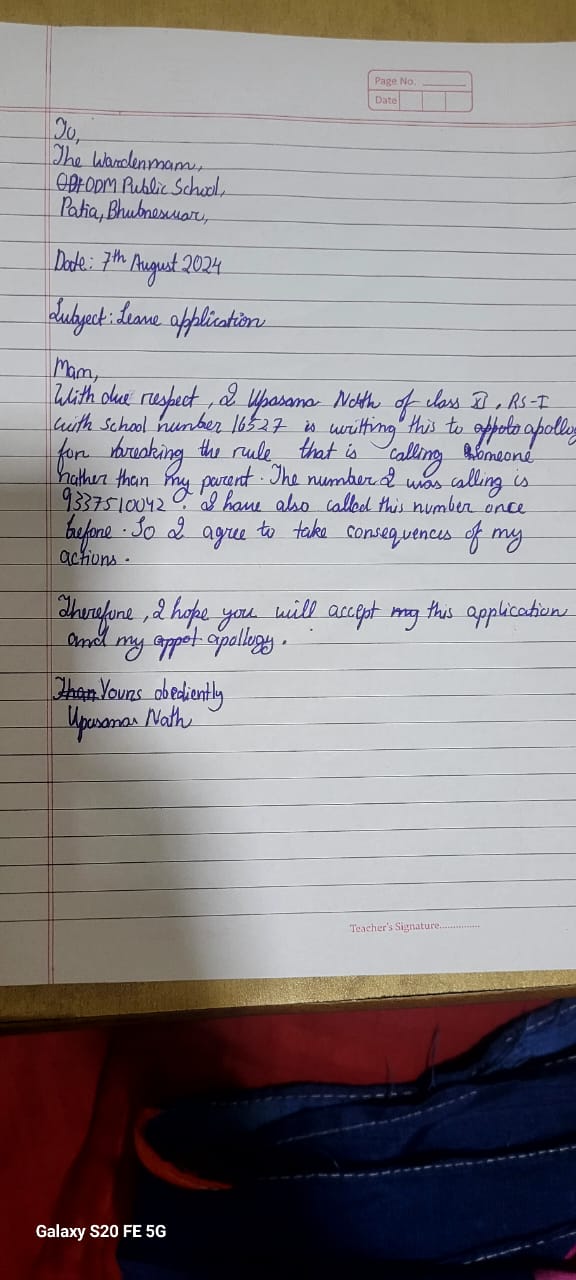 Page No.
Date
To,
The Wardenmam,
ODM Public School,
Patia, Bhubneswar,
Date: 7th August 2024
Subject: Leave application
Mam,
With due respect, I Upasana Nath of class XI, RS-I
with school number 16527 is writting this to apollog
for breaking the rule that is calling someone
rather than my parent. The number I was calling is
9337510042. I have also called this number once
before. So I agree to take consequences of my
actions.
Therefore, I hope you will accept my this application
and my appot apollogy.
Than Yours obediently
Upasana Nath
Teacher's Signature...............
Galaxy S20 FE 5G